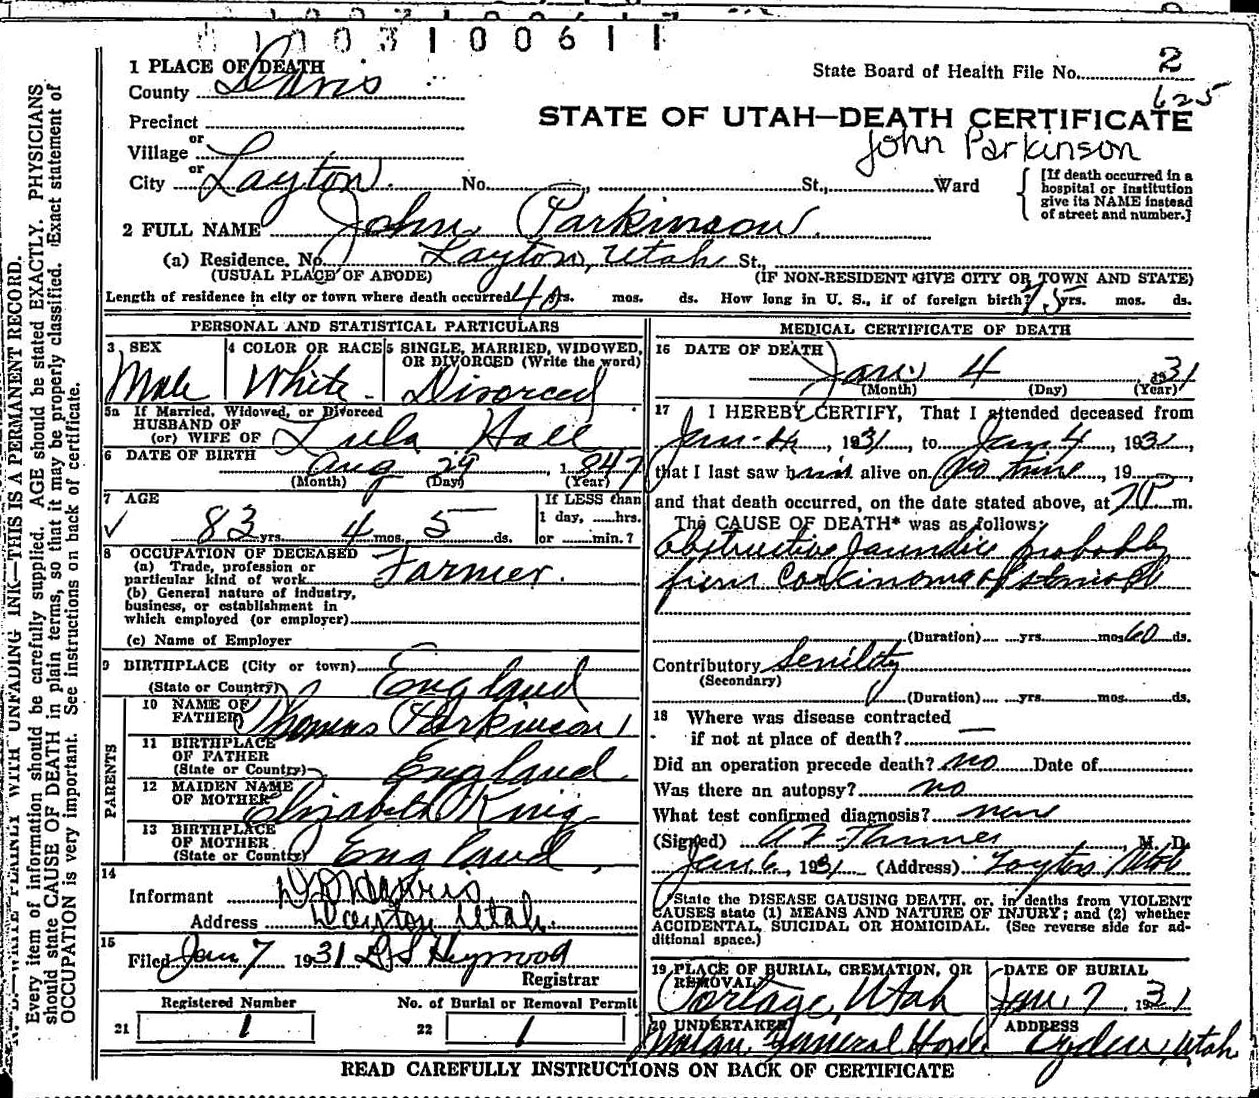 0 1 0 0 3 1 0 0 6 1 1
State Board of Health File No. 2
625
STATE OF UTAH—DEATH CERTIFICATE
John Parkinson
1 PLACE OF DEATH
County Davis
Precinct
or
Village
or
City Layton. No. , St., Ward
[If death occurred in a
hospital or institution
give its NAME instead
of street and number.]
2 FULL NAME John Parkinson.
(a) Residence. No. Layton, Utah St.,
(USUAL PLACE OF ABODE) (IF NON-RESIDENT GIVE CITY OR TOWN AND STATE)
Length of residence in city or town where death occurred 40 yrs. mos. ds. How long in U. S., if of foreign birth? 75 yrs. mos. ds.
PERSONAL AND STATISTICAL PARTICULARS
3 SEX
Male
4 COLOR OR RACE
White
5 SINGLE, MARRIED, WIDOWED,
OR DIVORCED (Write the word)
Divorced
5a If Married, Widowed, or Divorced
HUSBAND OF
(or) WIFE OF Lula Hall
6 DATE OF BIRTH Aug 29, 1847
(Month) (Day) (Year)
7 AGE
83 yrs. 4 mos. 5 ds.
If LESS than
1 day, hrs.
or min.?
8 OCCUPATION OF DECEASED
(a) Trade, profession or
particular kind of work Farmer.
(b) General nature of industry,
business, or establishment in
which employed (or employer)
(c) Name of Employer
9 BIRTHPLACE (City or town)
(State or Country) England
PARENTS
10 NAME OF
FATHER Thomas Parkinson
11 BIRTHPLACE
OF FATHER
(State or Country) England
12 MAIDEN NAME
OF MOTHER Elizabeth
13 BIRTHPLACE
OF MOTHER
(State or Country) England
14
Informant
Address Layton Utah.
15
Filed Jan 7 1931
Registrar
Registered Number
21 1
No. of Burial or Removal Permit
22 1
MEDICAL CERTIFICATE OF DEATH
16 DATE OF DEATH
Jan. 4 1931
(Month) (Day) (Year)
17 I HEREBY CERTIFY, That I attended deceased from
Jan-4, 1931, to Jan 4, 1931,
that I last saw him alive on no time, 19
and that death occurred, on the date stated above, at 7P m.
The CAUSE OF DEATH* was as follows:
Obstructive Jaundice probably
from Carkinoma of stomach
(Duration) yrs. mos. 60 ds.
Contributory Senility
(Secondary)
(Duration) yrs. mos. ds.
18 Where was disease contracted
if not at place of death? —
Did an operation precede death? no Date of
Was there an autopsy? no
What test confirmed diagnosis? none
(Signed) M. D.
Jan 6, 1931 (Address) Layton Utah
*State the DISEASE CAUSING DEATH, or, in deaths from VIOLENT
CAUSES state (1) MEANS AND NATURE OF INJURY; and (2) whether
ACCIDENTAL, SUICIDAL OR HOMICIDAL. (See reverse side for ad-
ditional space.)
19 PLACE OF BURIAL, CREMATION, OR
REMOVAL
Portage, Utah
DATE OF BURIAL
Jan. 7 1931
20 UNDERTAKER
Funeral Home
ADDRESS
Ogden, Utah
READ CAREFULLY INSTRUCTIONS ON BACK OF CERTIFICATE
N. B.—WRITE PLAINLY WITH UNFADING INK—THIS IS A PERMANENT RECORD.
Every item of information should be carefully supplied. AGE should be stated EXACTLY. PHYSICIANS
should state CAUSE OF DEATH in plain terms, so that it may be properly classified. Exact statement of
OCCUPATION is very important. See instructions on back of certificate.